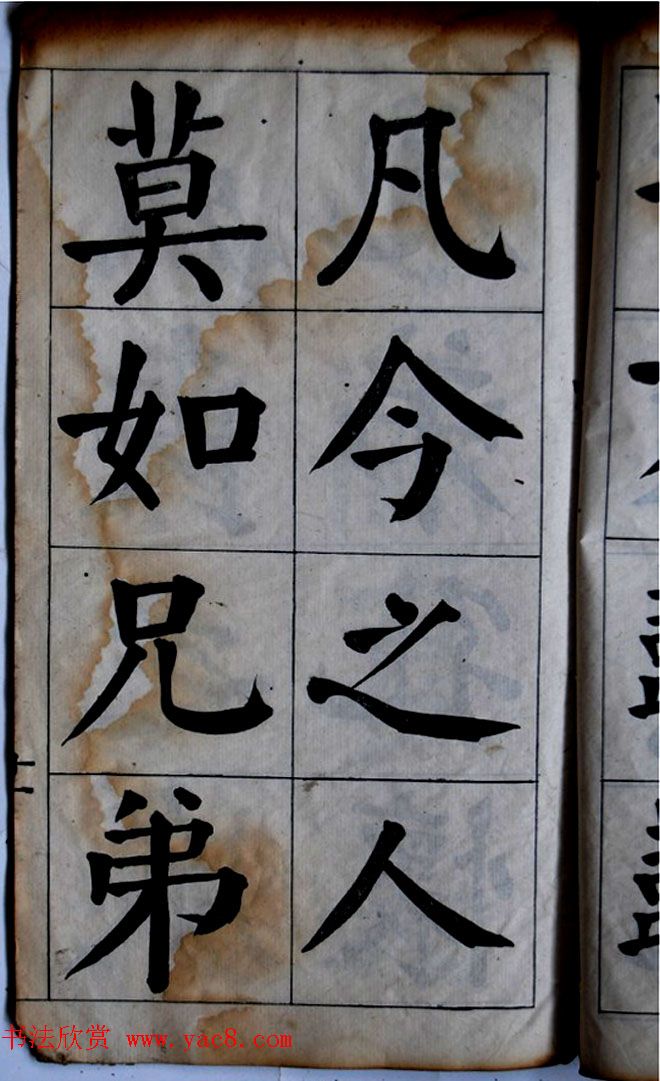 凡今之人
莫如兄弟
书法欣赏 www.yac8.com